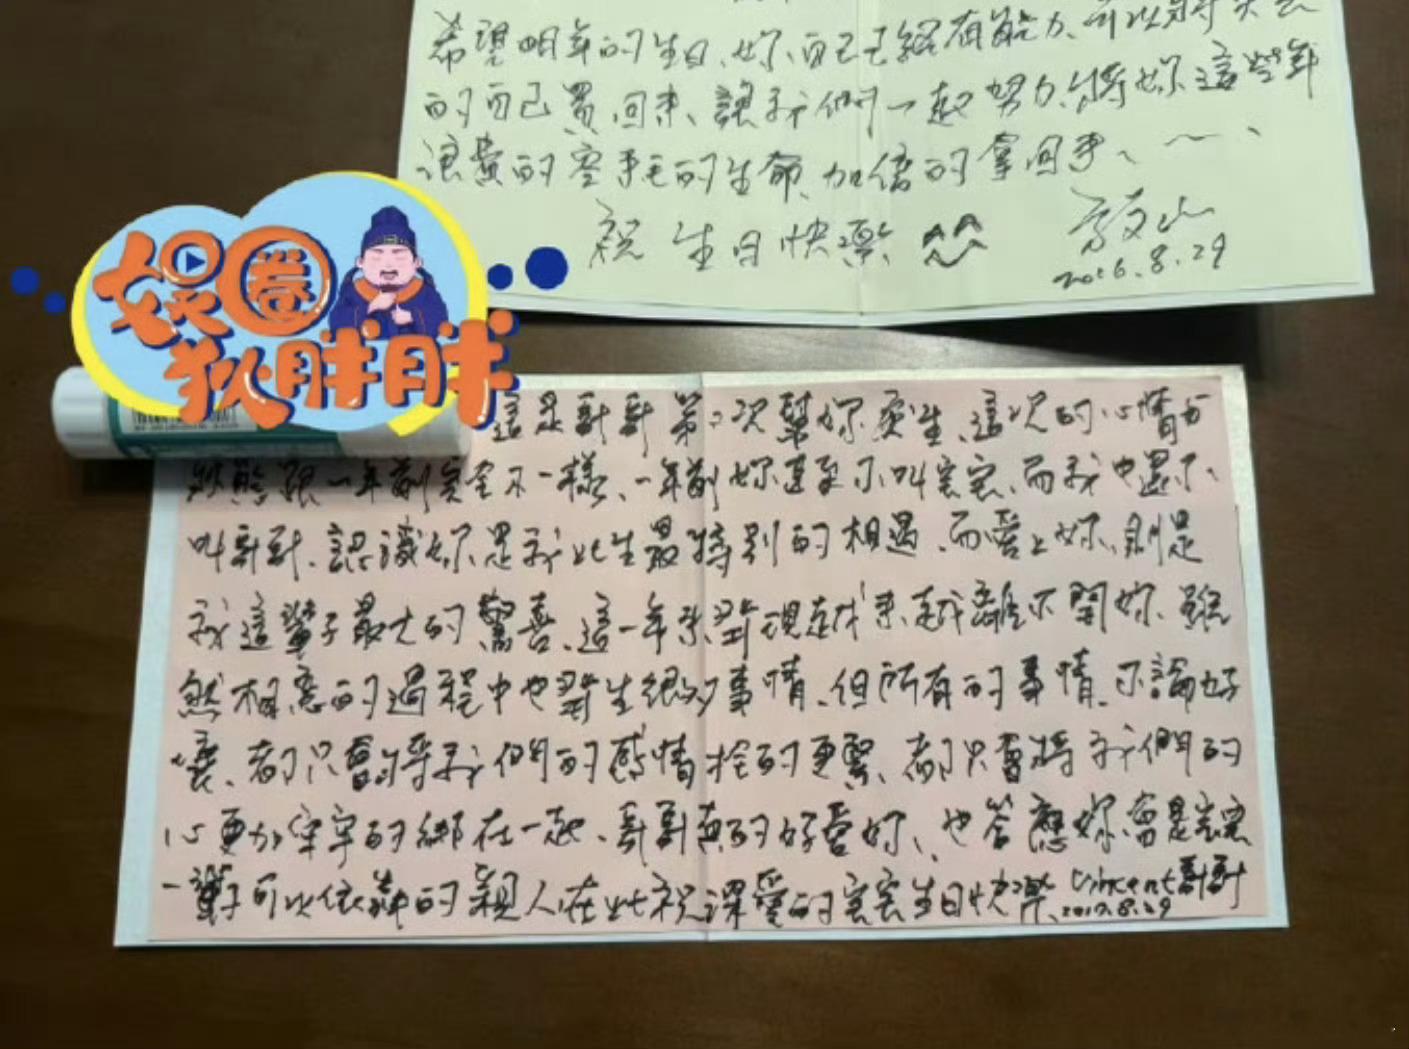 希望明年的生日、妳、自己已經有能力、可以將失去
的自己買回來、讓我們一起努力、將妳這些年
浪費的空白的生命、加倍的拿回來、～、
祝 生日快樂 ^^ 文山
2016.8.29
娛圈
狄胖胖
這是哥哥第二次幫妳慶生、這次的心情與
狀態跟一年前完全不一樣、一年前妳甚至不叫寶寶、而我也還不
叫哥哥、認識妳是我此生最特別的相遇、而愛上妳、則是
我這輩子最大的驚喜、這一年來發現越來越離不開妳、雖
然相戀的過程中也發生很多事情、但所有的事情、不論好
壞、都只會將我們的感情拴的更緊、都只會將我們的
心更加牢牢的綁在一起、哥哥真的好愛妳、也答應妳、會是寶寶
一輩子可以依靠的親人在此祝深愛的寶寶生日快樂、Vincent哥哥
2017.8.29